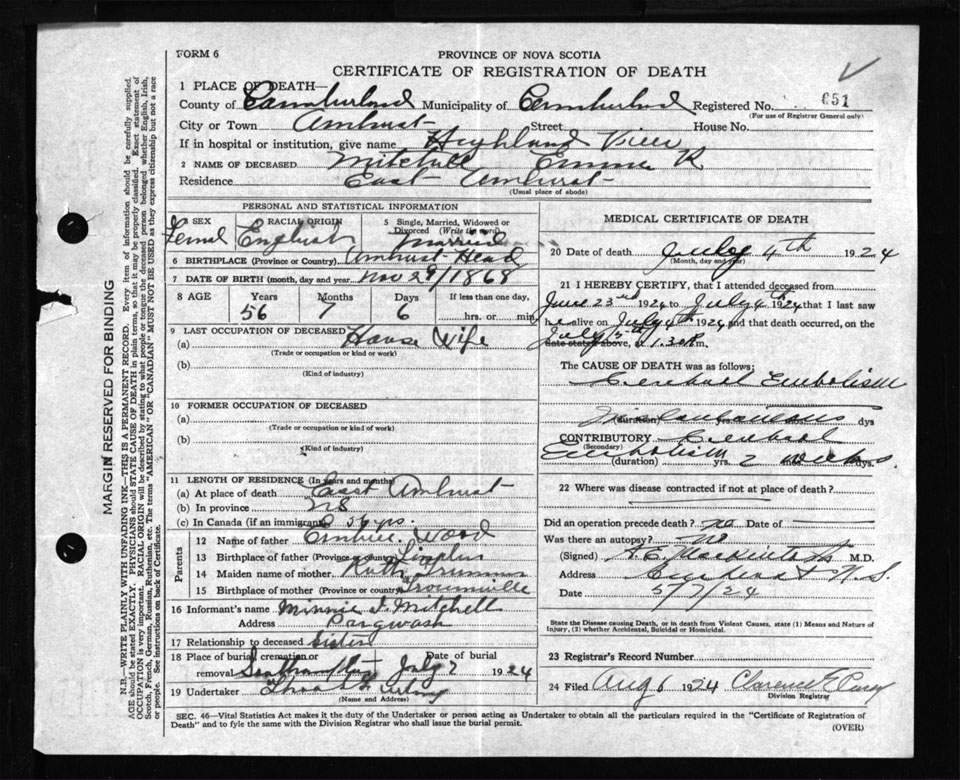 FORM 6
PROVINCE OF NOVA SCOTIA
CERTIFICATE OF REGISTRATION OF DEATH
1 PLACE OF DEATH—
County of Cumberland Municipality of Cumberland Registered No. 651
(For use of Registrar General only)
City or Town Amherst Street House No.
If in hospital or institution, give name Highland View
2 NAME OF DECEASED Mitchell Emma R
Residence East Amherst
(Usual place of abode)
PERSONAL AND STATISTICAL INFORMATION
3 SEX RACIAL ORIGIN 5 Single, Married, Widowed or Divorced (Write the word)
Femal English Married
6 BIRTHPLACE (Province or Country) Amherst Head
7 DATE OF BIRTH (month, day and year) Nov 29/1868
8 AGE Years Months Days If less than one day,
56 7 6 hrs. or min.
9 LAST OCCUPATION OF DECEASED
(a) House Wife
(Trade or occupation or kind or work)
(b)
(Kind of industry)
10 FORMER OCCUPATION OF DECEASED
(a)
(Trade or occupation or kind of work)
(b)
(Kind of industry)
11 LENGTH OF RESIDENCE (In years and months)
(a) At place of death East Amherst
(b) In province
(c) In Canada (if an immigrant) 56 yrs.
Parents
12 Name of father Wood
13 Birthplace of father (Province or country)
14 Maiden name of mother Ruth
15 Birthplace of mother (Province or country)
16 Informant's name Minnie J. Mitchell
Address Pugwash
17 Relationship to deceased Sister
18 Place of burial cremation or removal Date of burial July 7 1924
19 Undertaker
(Name and Address)
MEDICAL CERTIFICATE OF DEATH
20 Date of death July 4th 1924
(Month, day and year)
21 I HEREBY CERTIFY, that I attended deceased from
June 23rd 1924 to July 4th 1924 that I last saw
her alive on July 4th 1924 and that death occurred, on
July 5th date stated above, at 1.30 m.
The CAUSE OF DEATH was as follows:
Cerebral Embolism
(duration) yrs. mos. dys
CONTRIBUTORY Cerebral
(Secondary)
Embolism (duration) 2 weeks dys.
22 Where was disease contracted if not at place of death?
Did an operation precede death? no Date of
Was there an autopsy? no
(Signed) M.D.
Address Amherst N.S.
Date 5/7/24
State the Disease causing Death, or in death from Violent Causes, state (1) Means and Nature of Injury, (2) whether Accidental, Suicidal or Homicidal.
23 Registrar's Record Number
24 Filed Aug 6 1924 Clarence E.
Division Registrar
SEC. 46—Vital Statistics Act makes it the duty of the Undertaker or person acting as Undertaker to obtain all the particulars required in the "Certificate of Registration of
Death" and to fyle the same with the Division Registrar who shall issue the burial permit.
(OVER)
MARGIN RESERVED FOR BINDING
N.B.—WRITE PLAINLY WITH UNFADING INK—THIS IS A PERMANENT RECORD. Every item of information should be carefully supplied.
AGE should be stated EXACTLY. PHYSICIANS should STATE CAUSE OF DEATH in plain terms, so that it may be properly classified. Exact statement of
OCCUPATION is very important. RACIAL ORIGIN will be described by stating to what people or tongue the deceased person belonged whether English, Irish,
Scotch, French, German, Russian, Ruthenian, etc. The terms "AMERICAN" OR "CANADIAN" MUST NOT BE USED as they express citizenship but not a race
or people. See instructions on back of Certificate.